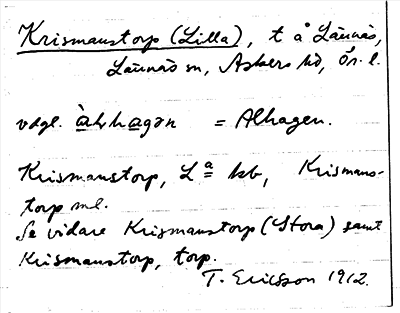 Krismanstorp (Lilla), t å Lännäs,
Lännäs sn, Askers hd, Ör. l.
vdgl. = Alhagen.
Krismanstorp, La kb, Krismans-
torp ml.
Se vidare Krismanstorp (Stora) samt
Krismanstorp, torp.
T. Ericsson 1912.